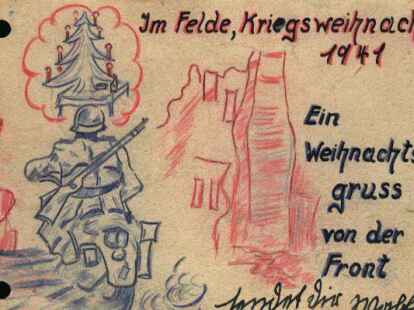 Im Felde, Kriegsweihnach
1941
Ein
Weihnachts
gruss
von der
Front
sendet dir